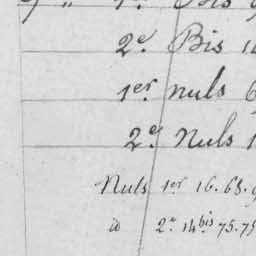 2e. Bis
1er. nuls 6
2e. Nuls 1
Nuls 1er 16.65.9
id 2e 14bis 75.75